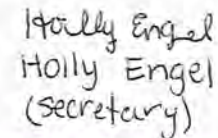 Holly Engel
Holly Engel
(secretary)